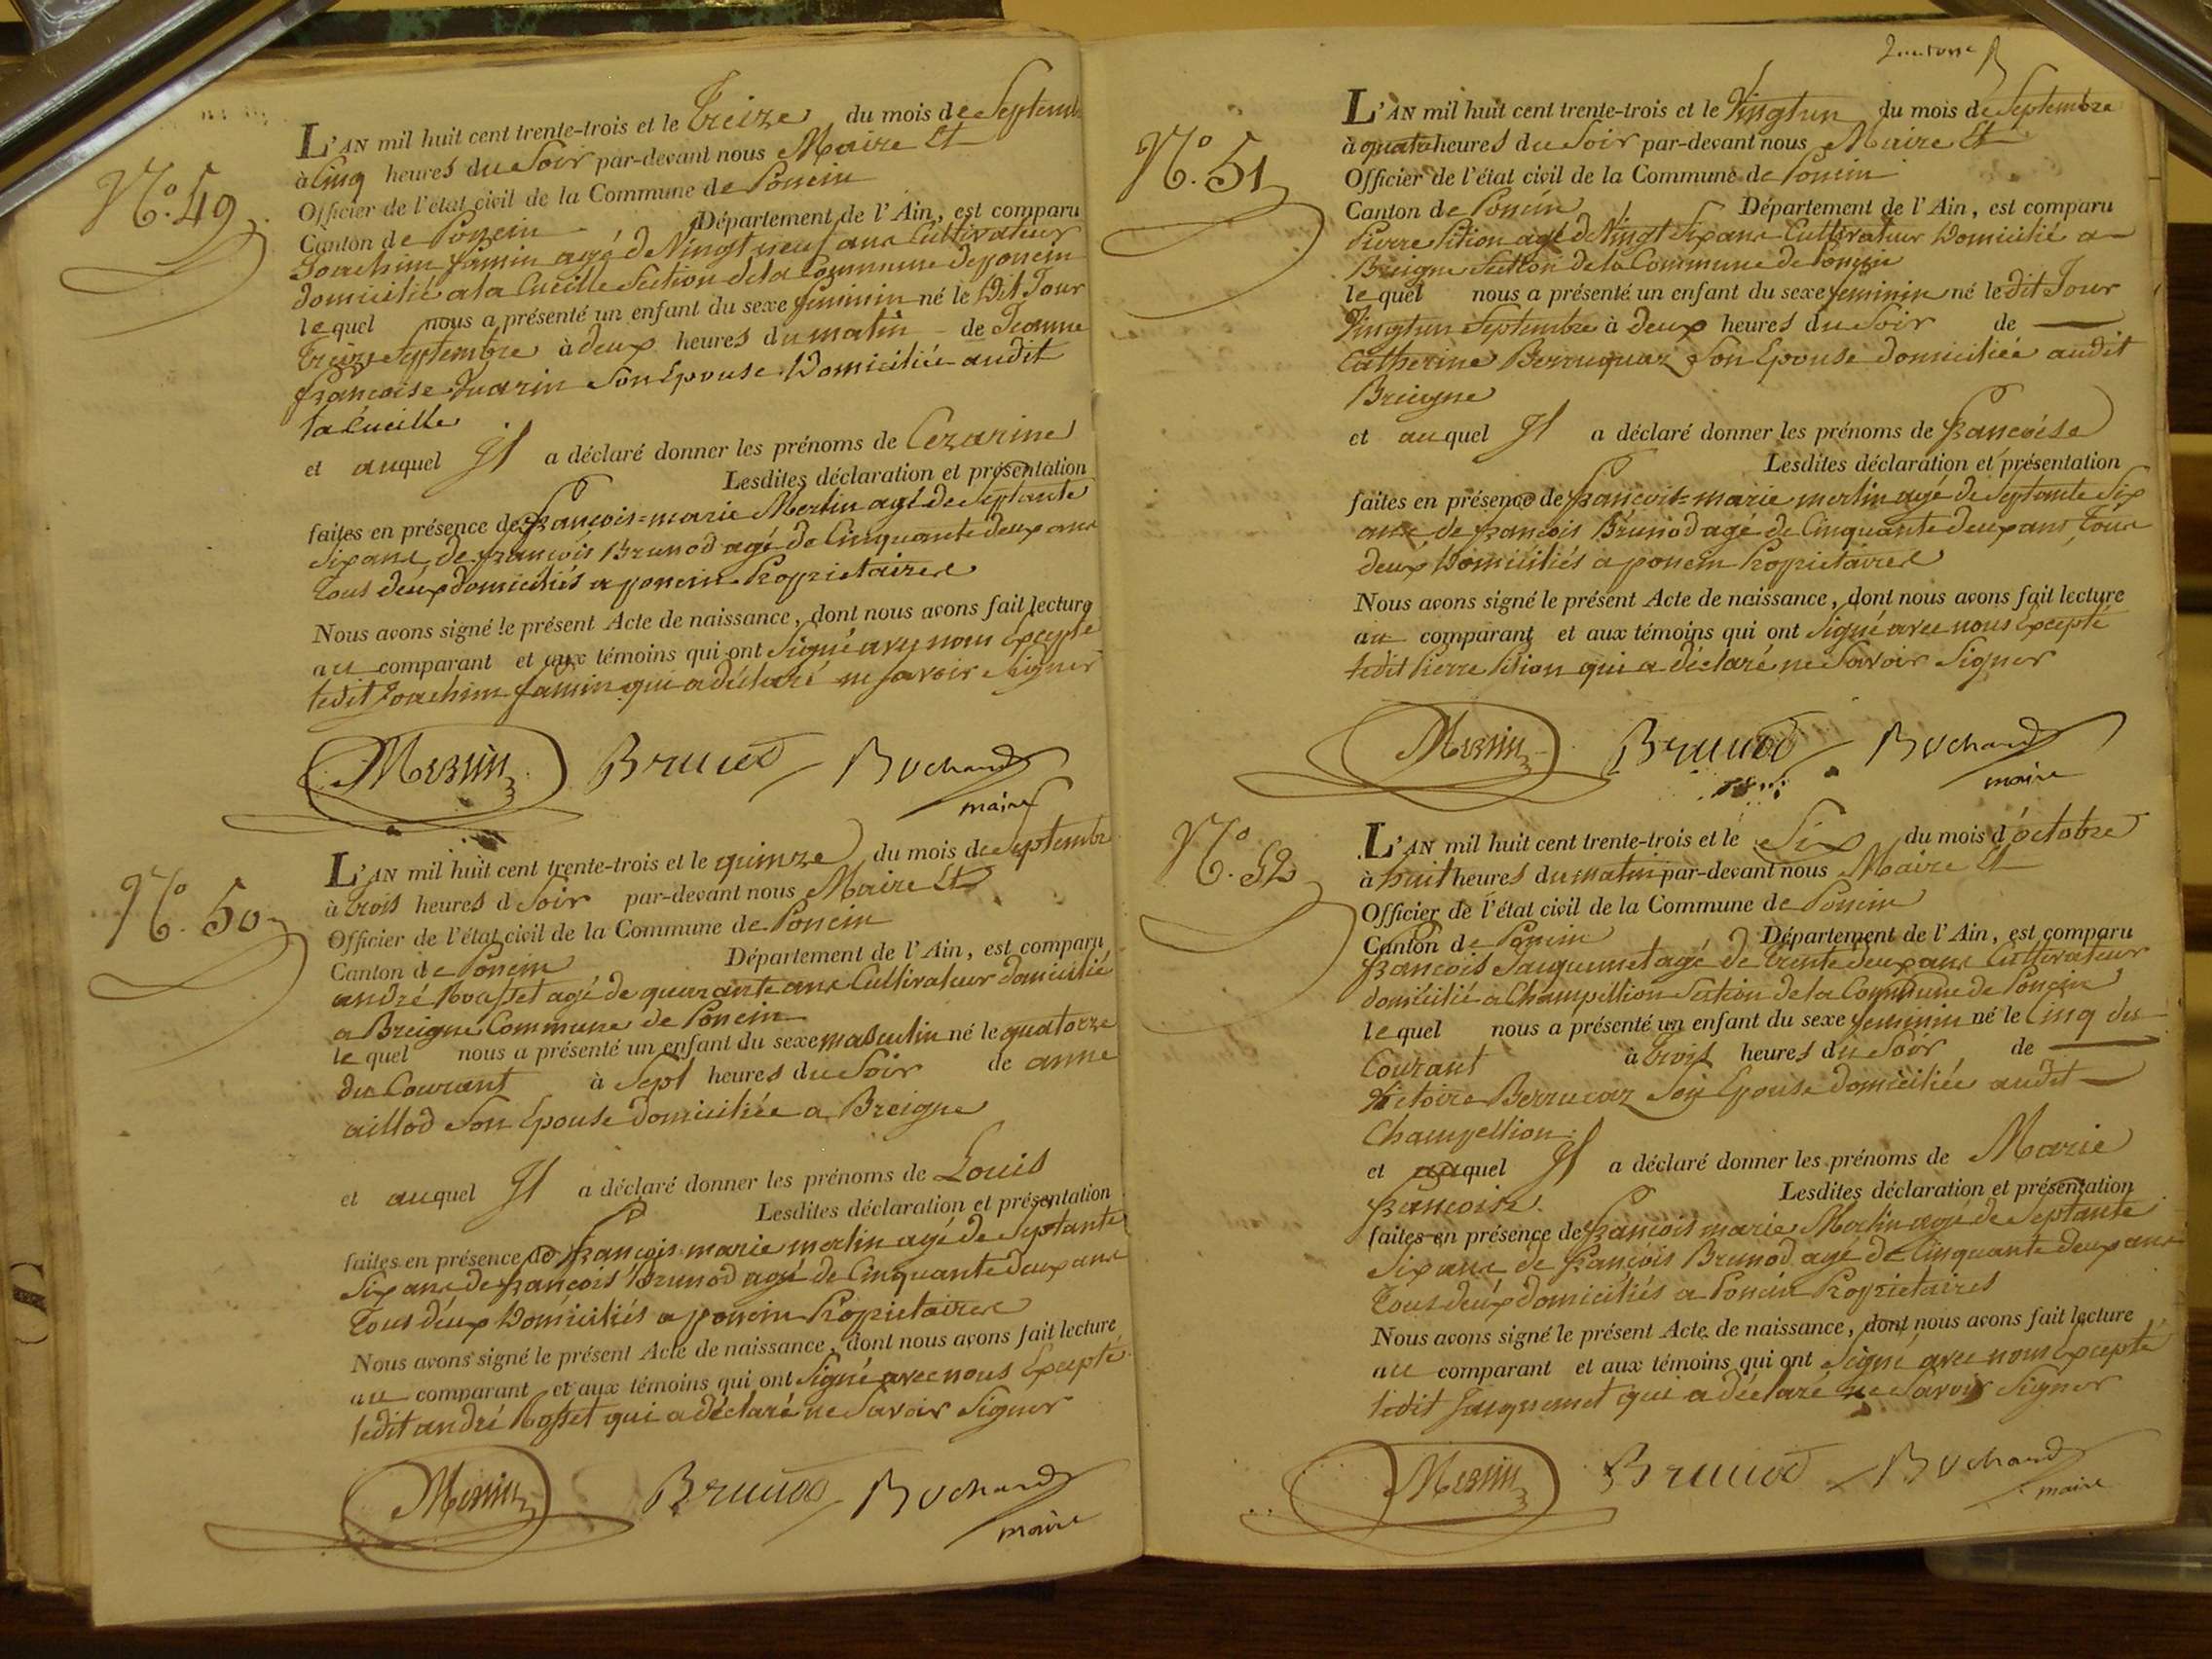 N.o 49
L'AN mil huit cent trente-trois et le Treize du mois de Septemb
à Cinq heures du Soir par-devant nous Maire Et
Officier de l'état civil de la Commune de Poncin
Canton de Poncin Département de l'Ain, est comparu
Joachim famin agé de Vingt neuf ans Cultivateur
domicilié a la Cueille Section de la Commune de poncin
le quel nous a présenté un enfant du sexe feminin né le Dit Jour
Treize Septembre à deux heures du matin de Jeanne
françoise Guarin Son Epouse Domiciliée audit
la Cueille
et auquel Il a déclaré donner les prénoms de Cezarine
Lesdites déclaration et présentation
faites en présence de françois=marie Merlin agé de Septante
Six ans, de françois Brunod agé de Cinquante deux ans
tous deux domiciliés a poncin Propriétaires
Nous avons signé le présent Acte de naissance, dont nous avons fait lecture
au comparant et aux témoins qui ont Signé avec nous Excepté
ledit Joachim famin qui a déclaré ne savoir Signer
Merlin Brunod Bochard
maire
N.o 50
L'AN mil huit cent trente-trois et le quinze du mois de Septembre
à trois heures d Soir par-devant nous Maire Et
Officier de l'état civil de la Commune de Poncin
Canton de Poncin Département de l'Ain, est comparu
andré Rosset agé de quarante ans Cultivateur domicilié
a Breigne Commune de Poncin
le quel nous a présenté un enfant du sexe masculin né le quatorze
du Courant à Sept heures du Soir de anne
aillod Son Epouse domiciliée a Breigne
et auquel Il a déclaré donner les prénoms de Louis
Lesdites déclaration et présentation
faites en présence de françois marie merlin agé de Septante
Six ans de françois Brunod agé de Cinquante deux ans
Tous deux Domiciliés a poncin Propriétaires
Nous avons signé le présent Acte de naissance, dont nous avons fait lecture
au comparant et aux témoins qui ont Signé avec nous Excepté
ledit andré Rosset qui a déclaré ne Savoir Signer
Merlin Brunod Bochard
maire
N.o 51
L'AN mil huit cent trente-trois et le Vingtun du mois de Septembre
à quatre heures du Soir par-devant nous Maire Et
Officier de l'état civil de la Commune de Poncin
Canton de Poncin Département de l'Ain, est comparu
Pierre Pition agé de Vingt Six ans Cultivateur Domicilié a
Breigne Section de la Commune de Poncin
le quel nous a présenté un enfant du sexe feminin né le dit Jour
Vingtun Septembre à deux heures du Soir de
Catherine Berruquaz Son Epouse domiciliée audit
Breigne
et auquel Il a déclaré donner les prénoms de françoise
Lesdites déclaration et présentation
faites en présence de françois=marie merlin agé de Septante Six
ans de françois Brunod agé de Cinquante deux ans Tous
deux Domiciliés a poncin Propriétaires
Nous avons signé le présent Acte de naissance, dont nous avons fait lecture
au comparant et aux témoins qui ont Signé avec nous Excepté
ledit Pierre Pition qui a déclaré ne Savoir Signer
Merlin Brunod Bochard
maire
N.o 52
L'AN mil huit cent trente-trois et le Six du mois d'octobre
à huit heures du matin par-devant nous Maire Et
Officier de l'état civil de la Commune de Poncin
Canton de Poncin Département de l'Ain, est comparu
françois Jauquemet agé de trente deux ans Cultivateur
domicilié a Champillion Section de la Commune de Poncin
le quel nous a présenté un enfant du sexe feminin né le Cinq du
Courant à trois heures du Soir de
Victoire Berrucaz Son Epouse domiciliée audit
Champellion.
et auquel Il a déclaré donner les prénoms de Marie
françoise.
Lesdites déclaration et présentation
faites en présence de françois marie Merlin agé de Septante
Six ans de françois Brunod agé de Cinquante deux ans
Tous deux domiciliés a Poncin Propriétaires
Nous avons signé le présent Acte de naissance, dont nous avons fait lecture
au comparant et aux témoins qui ont Signé avec nous Excepté
ledit Jauquemet qui a déclaré ne Savoir Signer
Merlin Brunod Bochard
maire